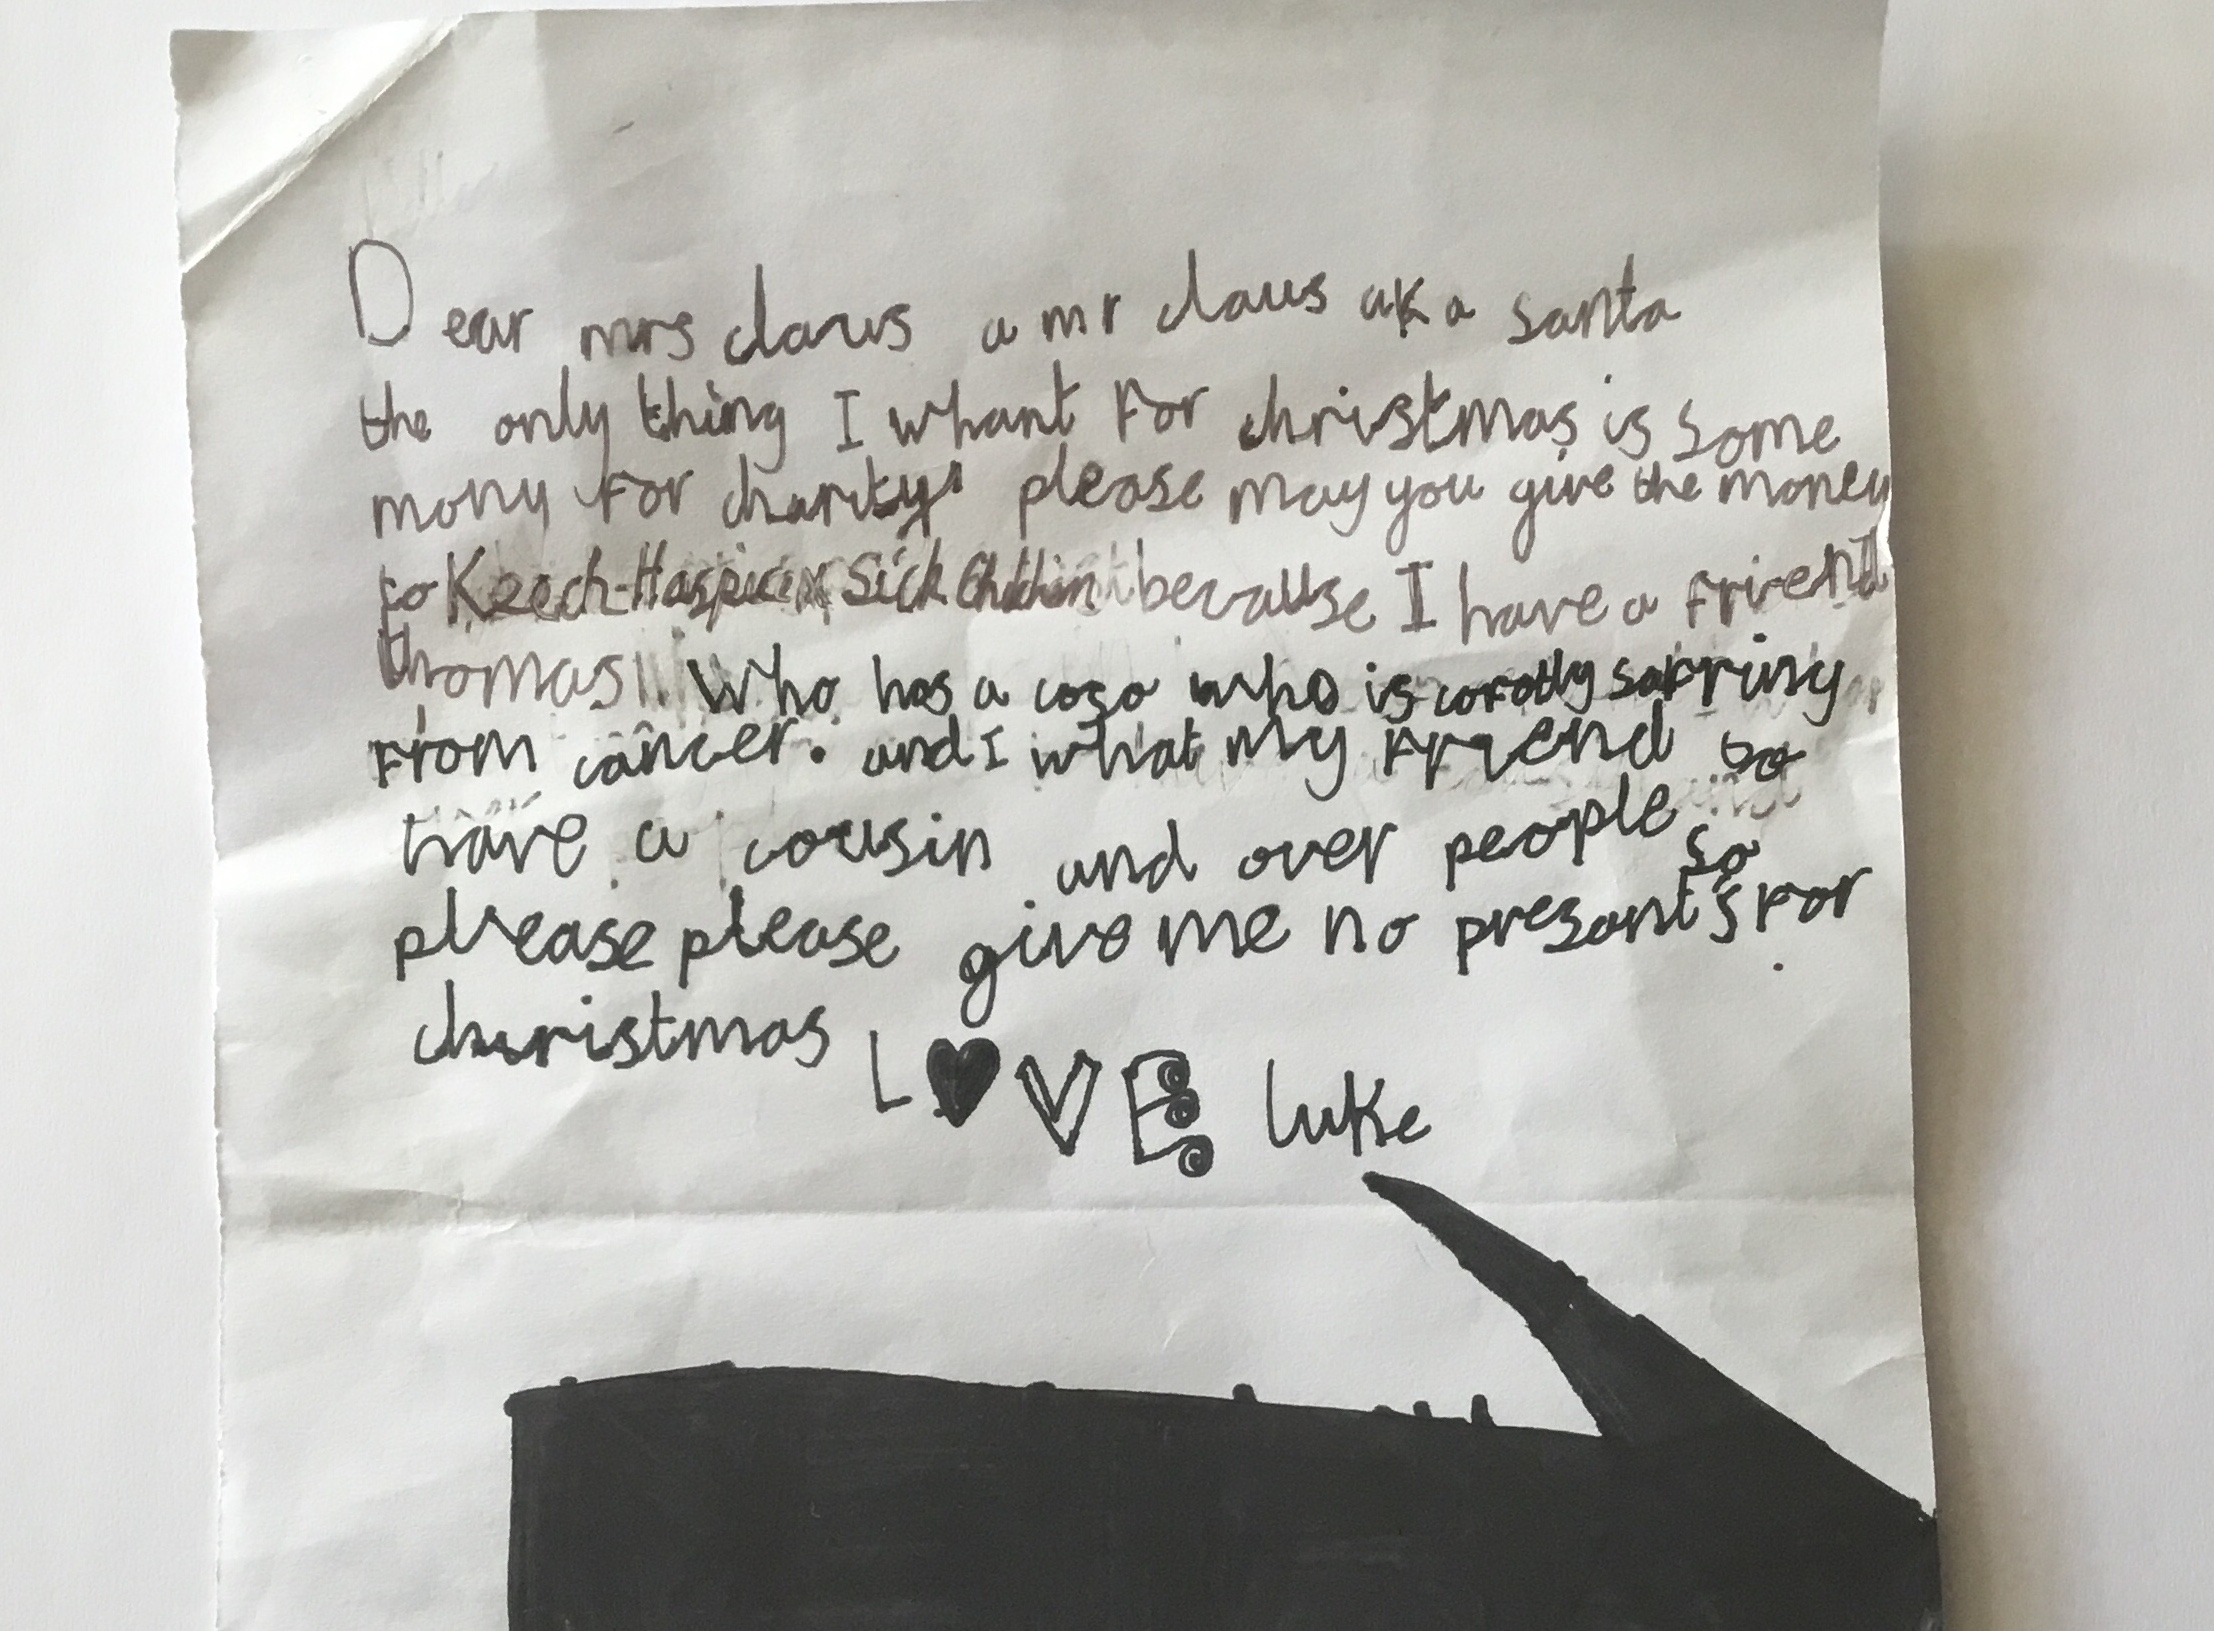 Dear mrs claus a mr claus aka santa
the only thing I whant for christmas is some
mony for charity! please may you give the money
to Keech-Hospice Sick Children because I have a friend
thomas Who has a coso who is corotly sorring
from cancer. and I what my friend to
have a cousin and over people so
please please give me no presants for
christmas LOVE luke